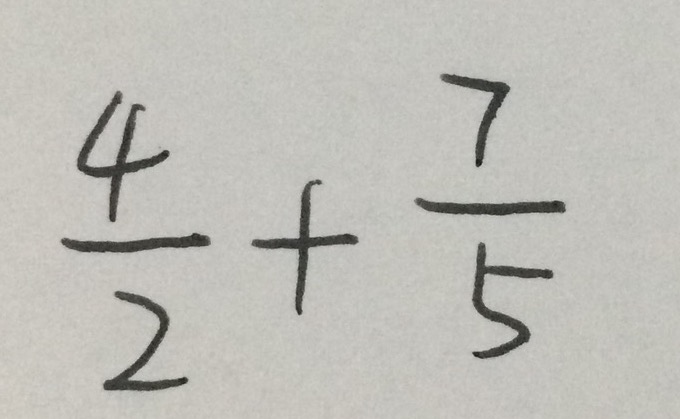 4/2 + 7/5